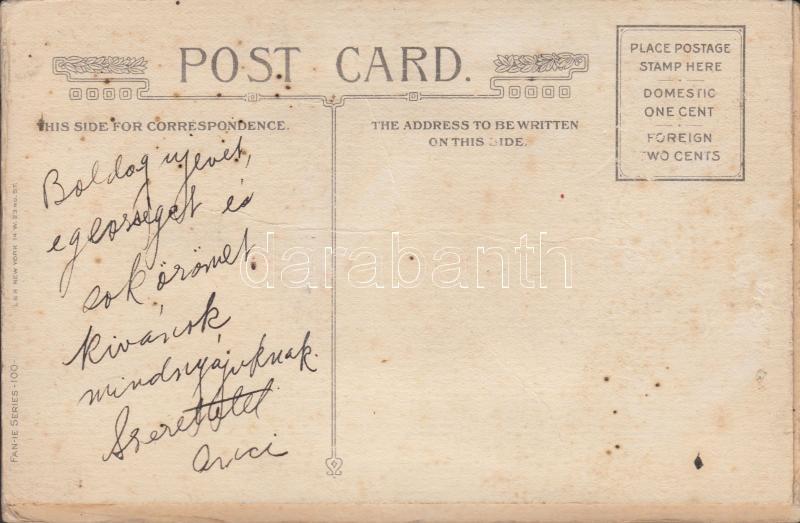 POST CARD.
THIS SIDE FOR CORRESPONDENCE.
THE ADDRESS TO BE WRITTEN
ON THIS SIDE.
PLACE POSTAGE
STAMP HERE
DOMESTIC
ONE CENT
FOREIGN
TWO CENTS
Boldog ujevet,
egeorséget és
sok örömet
kivánok
mindnyájuknak.
Szeretettel
darabanth
L & R NEW YORK 14 W. 23 RD. ST.
FAN-IE SERIES-100-